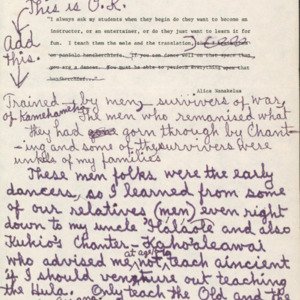 This is O.K.
Add
this.
"I always ask my students when they begin do they want to become an
instructor, or an entertainer, or do they just want to learn it for
fun. I teach them the mele and the translation,
handkerchief... If you can dance well on that space then
you are a dancer. You must be able to perform everything upon that
handkerchief..."
Alice Namakelua
Trained by men, survivors of war,
of Kamehameha. The men who remanised what
they had gorn through by Chant-
ing and some of the survivers were
unkels of my families
These men folks were the early
dancers, so I learned from some
of our relatives (men) even right
down to my uncle "Halaole and also
Kuhio's Chanter - Kaho'oleawai
who advised me, not teach aincient
at age
if I should venture out teaching
the Hula. Only teach the Old and the